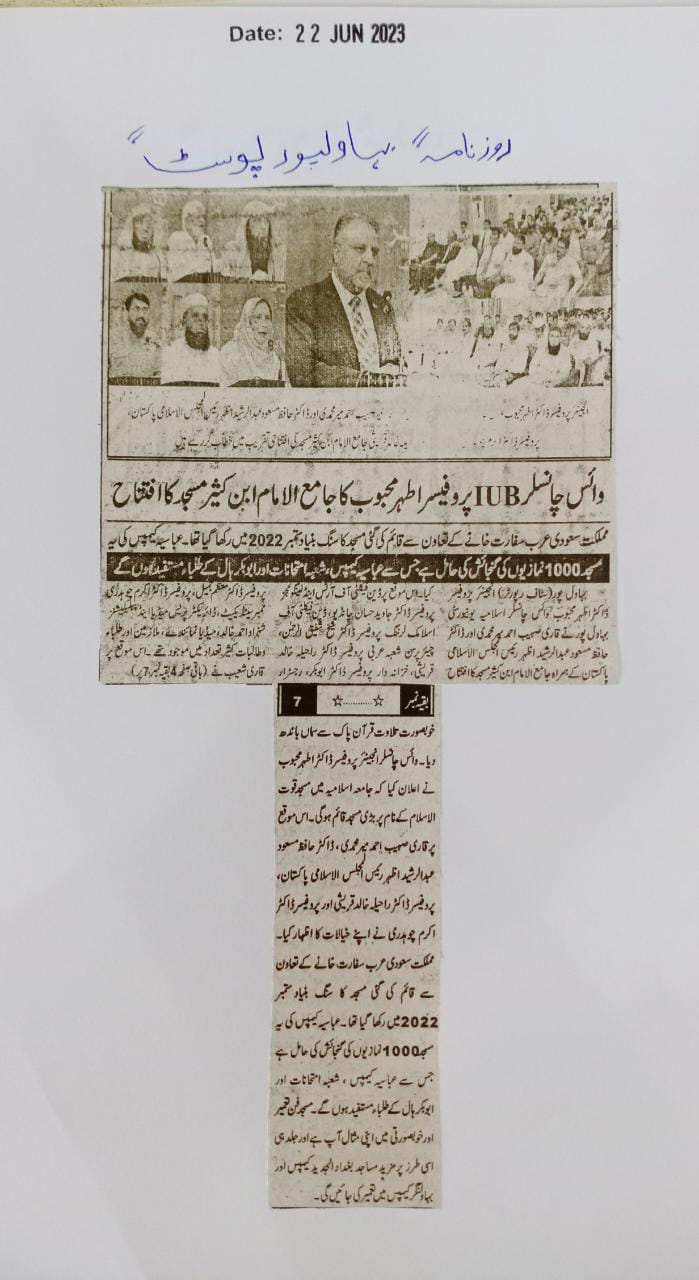 Date: 22 JUN 2023
روزنامہ "بہاولپور پوسٹ"
انجینئر پروفیسر ڈاکٹر اطہر محبوب، صہیب احمد میر محمدی اور ڈاکٹر حافظ مسعود عبدالرشید اظہر رئیس المجلس الاسلامی پاکستان،
پروفیسر ڈاکٹر جامع الامام ابن کثیر مسجد کی افتتاحی تقریب میں خطاب کر رہے ہیں
وائس چانسلر IUB پروفیسر اطہر محبوب کا جامع الامام ابن کثیر مسجد کا افتتاح
مملکت سعودی عرب سفارت خانے کے تعاون سے قائم کی گئی مسجد کا سنگ بنیاد ستمبر 2022 میں رکھا گیا تھا۔ عباسیہ کیمپس کی یہ
مسجد 1000 نمازیوں کی گنجائش کی حامل ہے جس سے عباسیہ کیمپس، شعبہ امتحانات اور ابوبکر ہال کے طلباء مستفید ہوں گے
بہاول پور (سٹاف رپورٹر) انجینئر پروفیسر
ڈاکٹر اطہر محبوب وائس چانسلر اسلامیہ یونیورسٹی
بہاول پور نے قاری صہیب احمد میر محمدی اور ڈاکٹر
حافظ مسعود عبدالرشید اظہر رئیس المجلس الاسلامی
پاکستان کے ہمراہ جامع الامام ابن کثیر مسجد کا افتتاح
کیا۔ اس موقع پر ڈین فیکلٹی آف آرٹس اینڈ لینگوئجز
پروفیسر ڈاکٹر جاوید حسان چانڈیو، ڈین فیکلٹی آف
اسلامک لرننگ پروفیسر ڈاکٹر شیخ شفیق الرحمن،
چیئرپرسن شعبہ عربی پروفیسر ڈاکٹر راحیلہ خالد
قریشی، خزانہ دار پروفیسر ڈاکٹر ابوبکر، رجسٹرار
پروفیسر ڈاکٹر معظم جمیل، پروفیسر ڈاکٹر اکرم چوہدری
ممبر سینڈیکیٹ، ڈائریکٹر پریس میڈیا اینڈ پبلیکیشنز
شہزاد احمد خالد، میڈیا نمائندگان، ملازمین اور طلباء
و طالبات کثیر تعداد میں موجود تھے۔ اس موقع پر
قاری شعیب نے (باقی صفحہ 4 بقیہ نمبر 7 پر)
بقیہ نمبر ☆..........☆ 7
خوبصورت تلاوت قرآن پاک سے سماں باندھ
دیا۔ وائس چانسلر انجینئر پروفیسر ڈاکٹر اطہر محبوب
نے اعلان کیا کہ جامعہ اسلامیہ میں مسجد قوت
الاسلام کے نام پر بڑی مسجد قائم ہوگی۔ اس موقع
پر قاری صہیب احمد میر محمدی، ڈاکٹر حافظ مسعود
عبدالرشید اظہر رئیس المجلس الاسلامی پاکستان،
پروفیسر ڈاکٹر راحیلہ خالد قریشی اور پروفیسر ڈاکٹر
اکرم چوہدری نے اپنے خیالات کا اظہار کیا۔
مملکت سعودی عرب سفارت خانے کے تعاون
سے قائم کی گئی مسجد کا سنگ بنیاد ستمبر
2022 میں رکھا گیا تھا۔ عباسیہ کیمپس کی یہ
مسجد 1000 نمازیوں کی گنجائش کی حامل ہے
جس سے عباسیہ کیمپس، شعبہ امتحانات اور
ابوبکر ہال کے طلباء مستفید ہوں گے۔ مسجد فن تعمیر
اور خوبصورتی میں اپنی مثال آپ ہے اور جلد ہی
اسی طرز پر مزید مساجد بغداد الجدید کیمپس اور
بہاولنگر کیمپس میں تعمیر کی جائیں گی۔